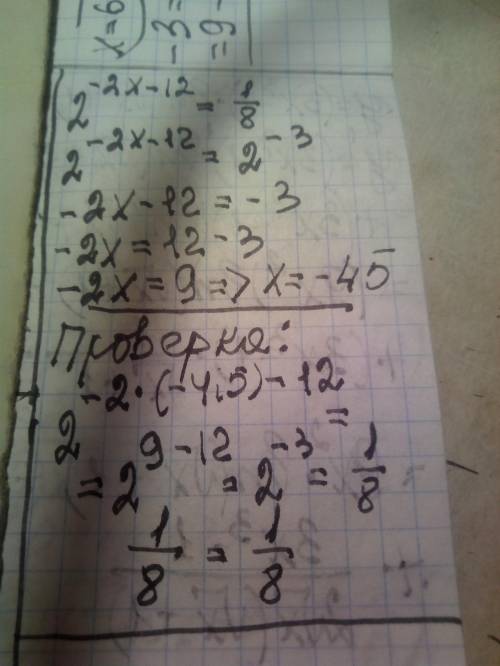 x=6
-3=
=9-
2^{-2x-12} = 1/8
2^{-2x-12} = 2^{-3}
-2x-12=-3
-2x=12-3
-2x=9=>x=-45
Проверка:
2^{-2·(-4,5)-12} =
=2^{9-12} =2^{-3} = 1/8
1/8 = 1/8